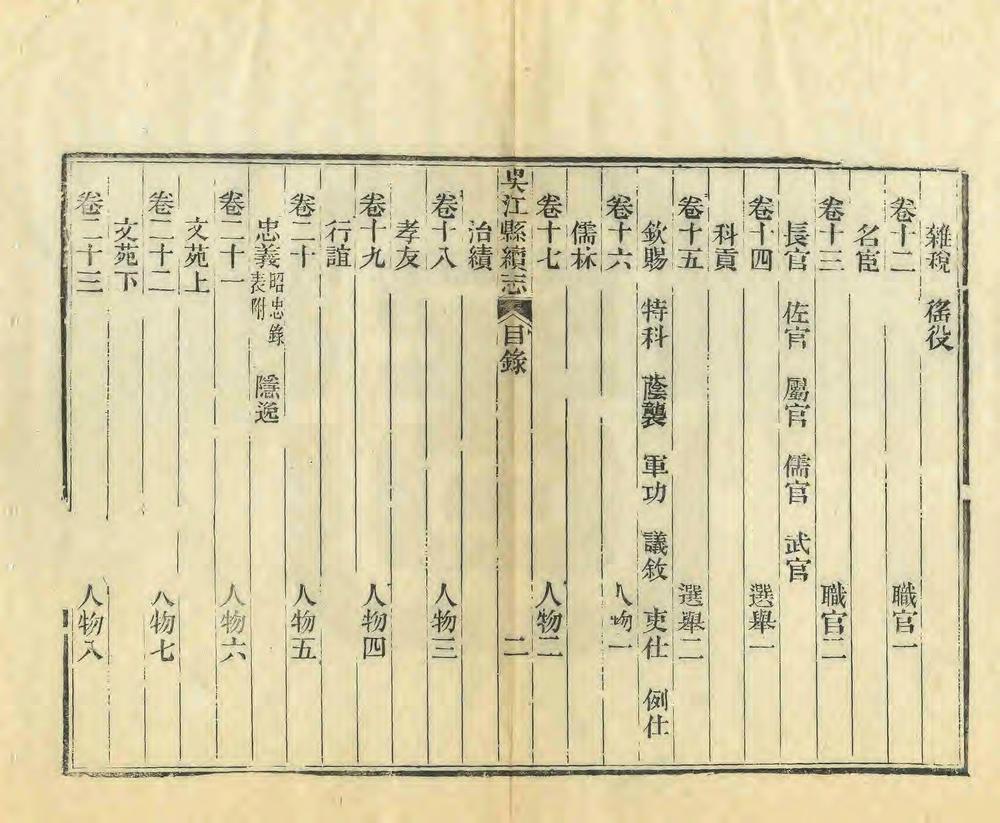 雜稅 徭役
卷十二 職官一
名臣
卷十三 職官二
長官 佐官 屬官 儒官 武官
卷十四 選舉一
科貢
卷十五 選舉二
欽賜 特科 蔭襲 軍功 議敘 吏仕 例仕
卷十六 人物一
儒林
卷十七 人物二
吳江縣續志 卷 目錄 二
治績
卷十八 人物三
孝友
卷十九 人物四
行誼
卷二十 人物五
忠義 昭忠錄表附 隱逸
卷二十一 人物六
文苑上
卷二十二 人物七
文苑下
卷二十三 人物八